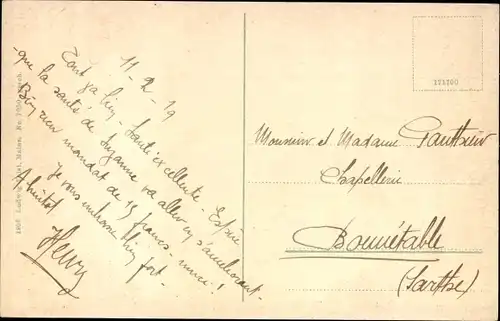 11-2-19
Tout va bien - Santé excellente - Espère
que la santé de Suzanne va aller en s'améliorant -
Bien reçu mandat de 15 francs - merci !
Je vous embrasse bien fort.
A bientôt
Henry
171760
Monsieur et Madame Gauthier
Chapellerie
Bonnétable
(Sarthe)